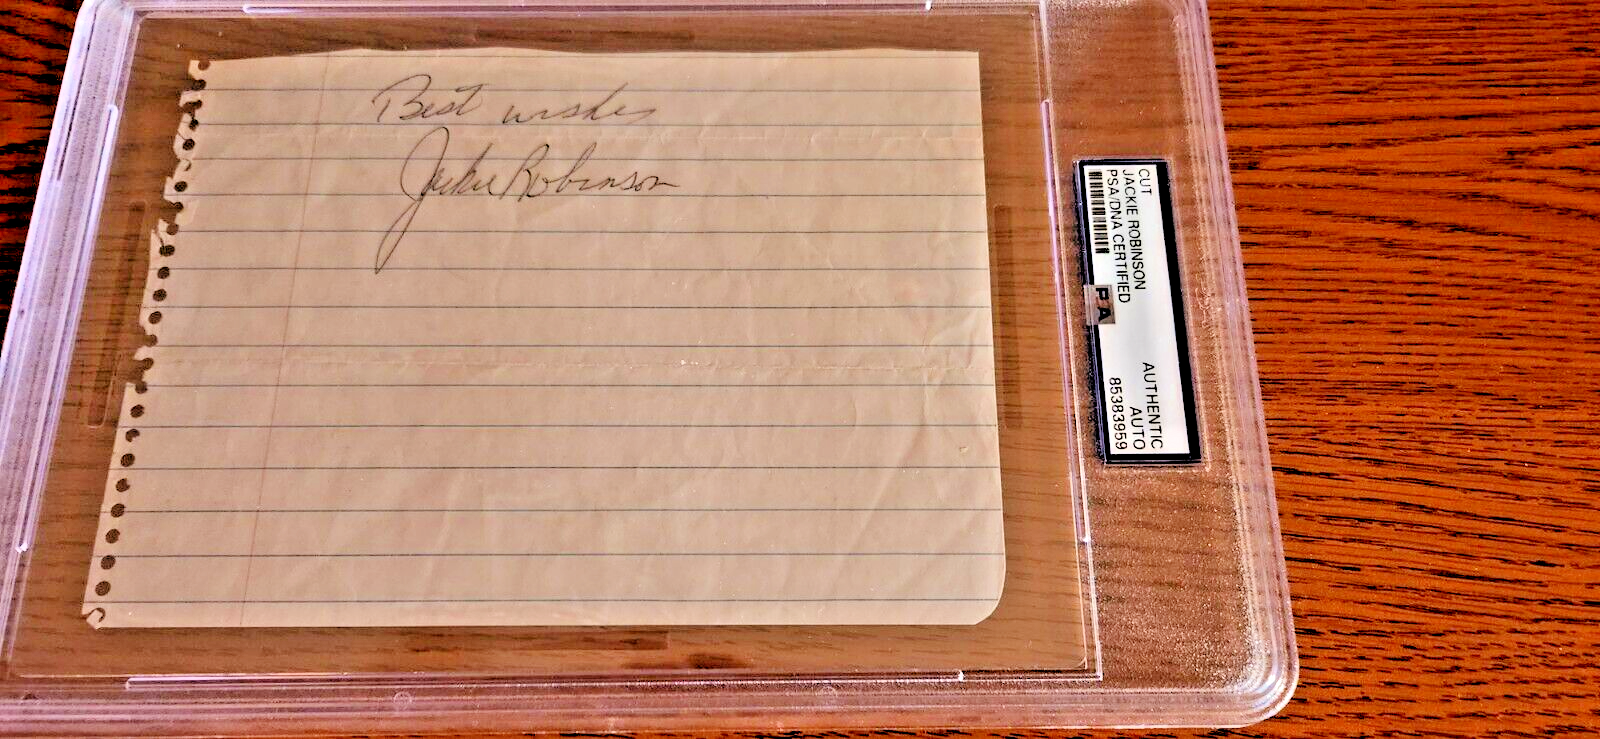 Best wishes
Jackie Robinson
CUT
JACKIE ROBINSON
PSA/DNA CERTIFIED
AUTHENTIC
AUTO
85383959